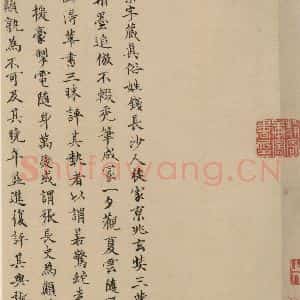 素字藏真俗姓錢長沙人徙家京兆玄奘三
墨追倣不輟禿筆成冢一夕觀夏雲隨
得草書三昧評其執者以謂若驚蛇走
機豪掣電隨手萬變或謂張長史為顛
顛孰為不可及其晚年益進復評其與張
Shufawang.CN